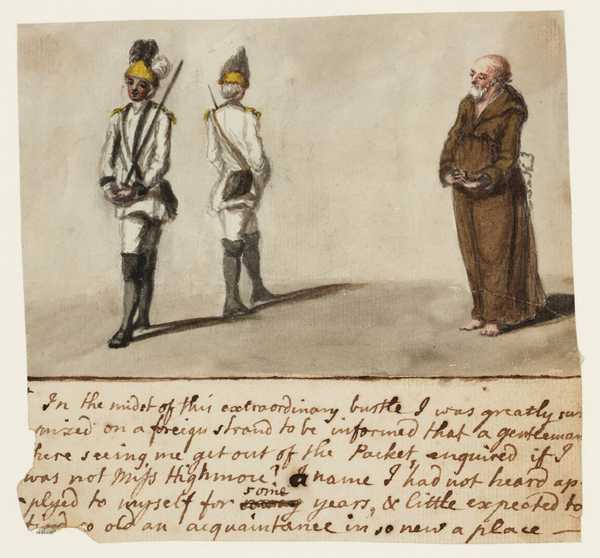 In the midst of this extraordinary bustle I was greatly sur
mized on a foreign strand to be informed that a gentleman
here seeing me get out of the Packet, enquired if I
was not Miss Highmore? A name I had not heard ap-
-plyed to myself for some years, & little expected to
find so old an acquaintance in so new a place —